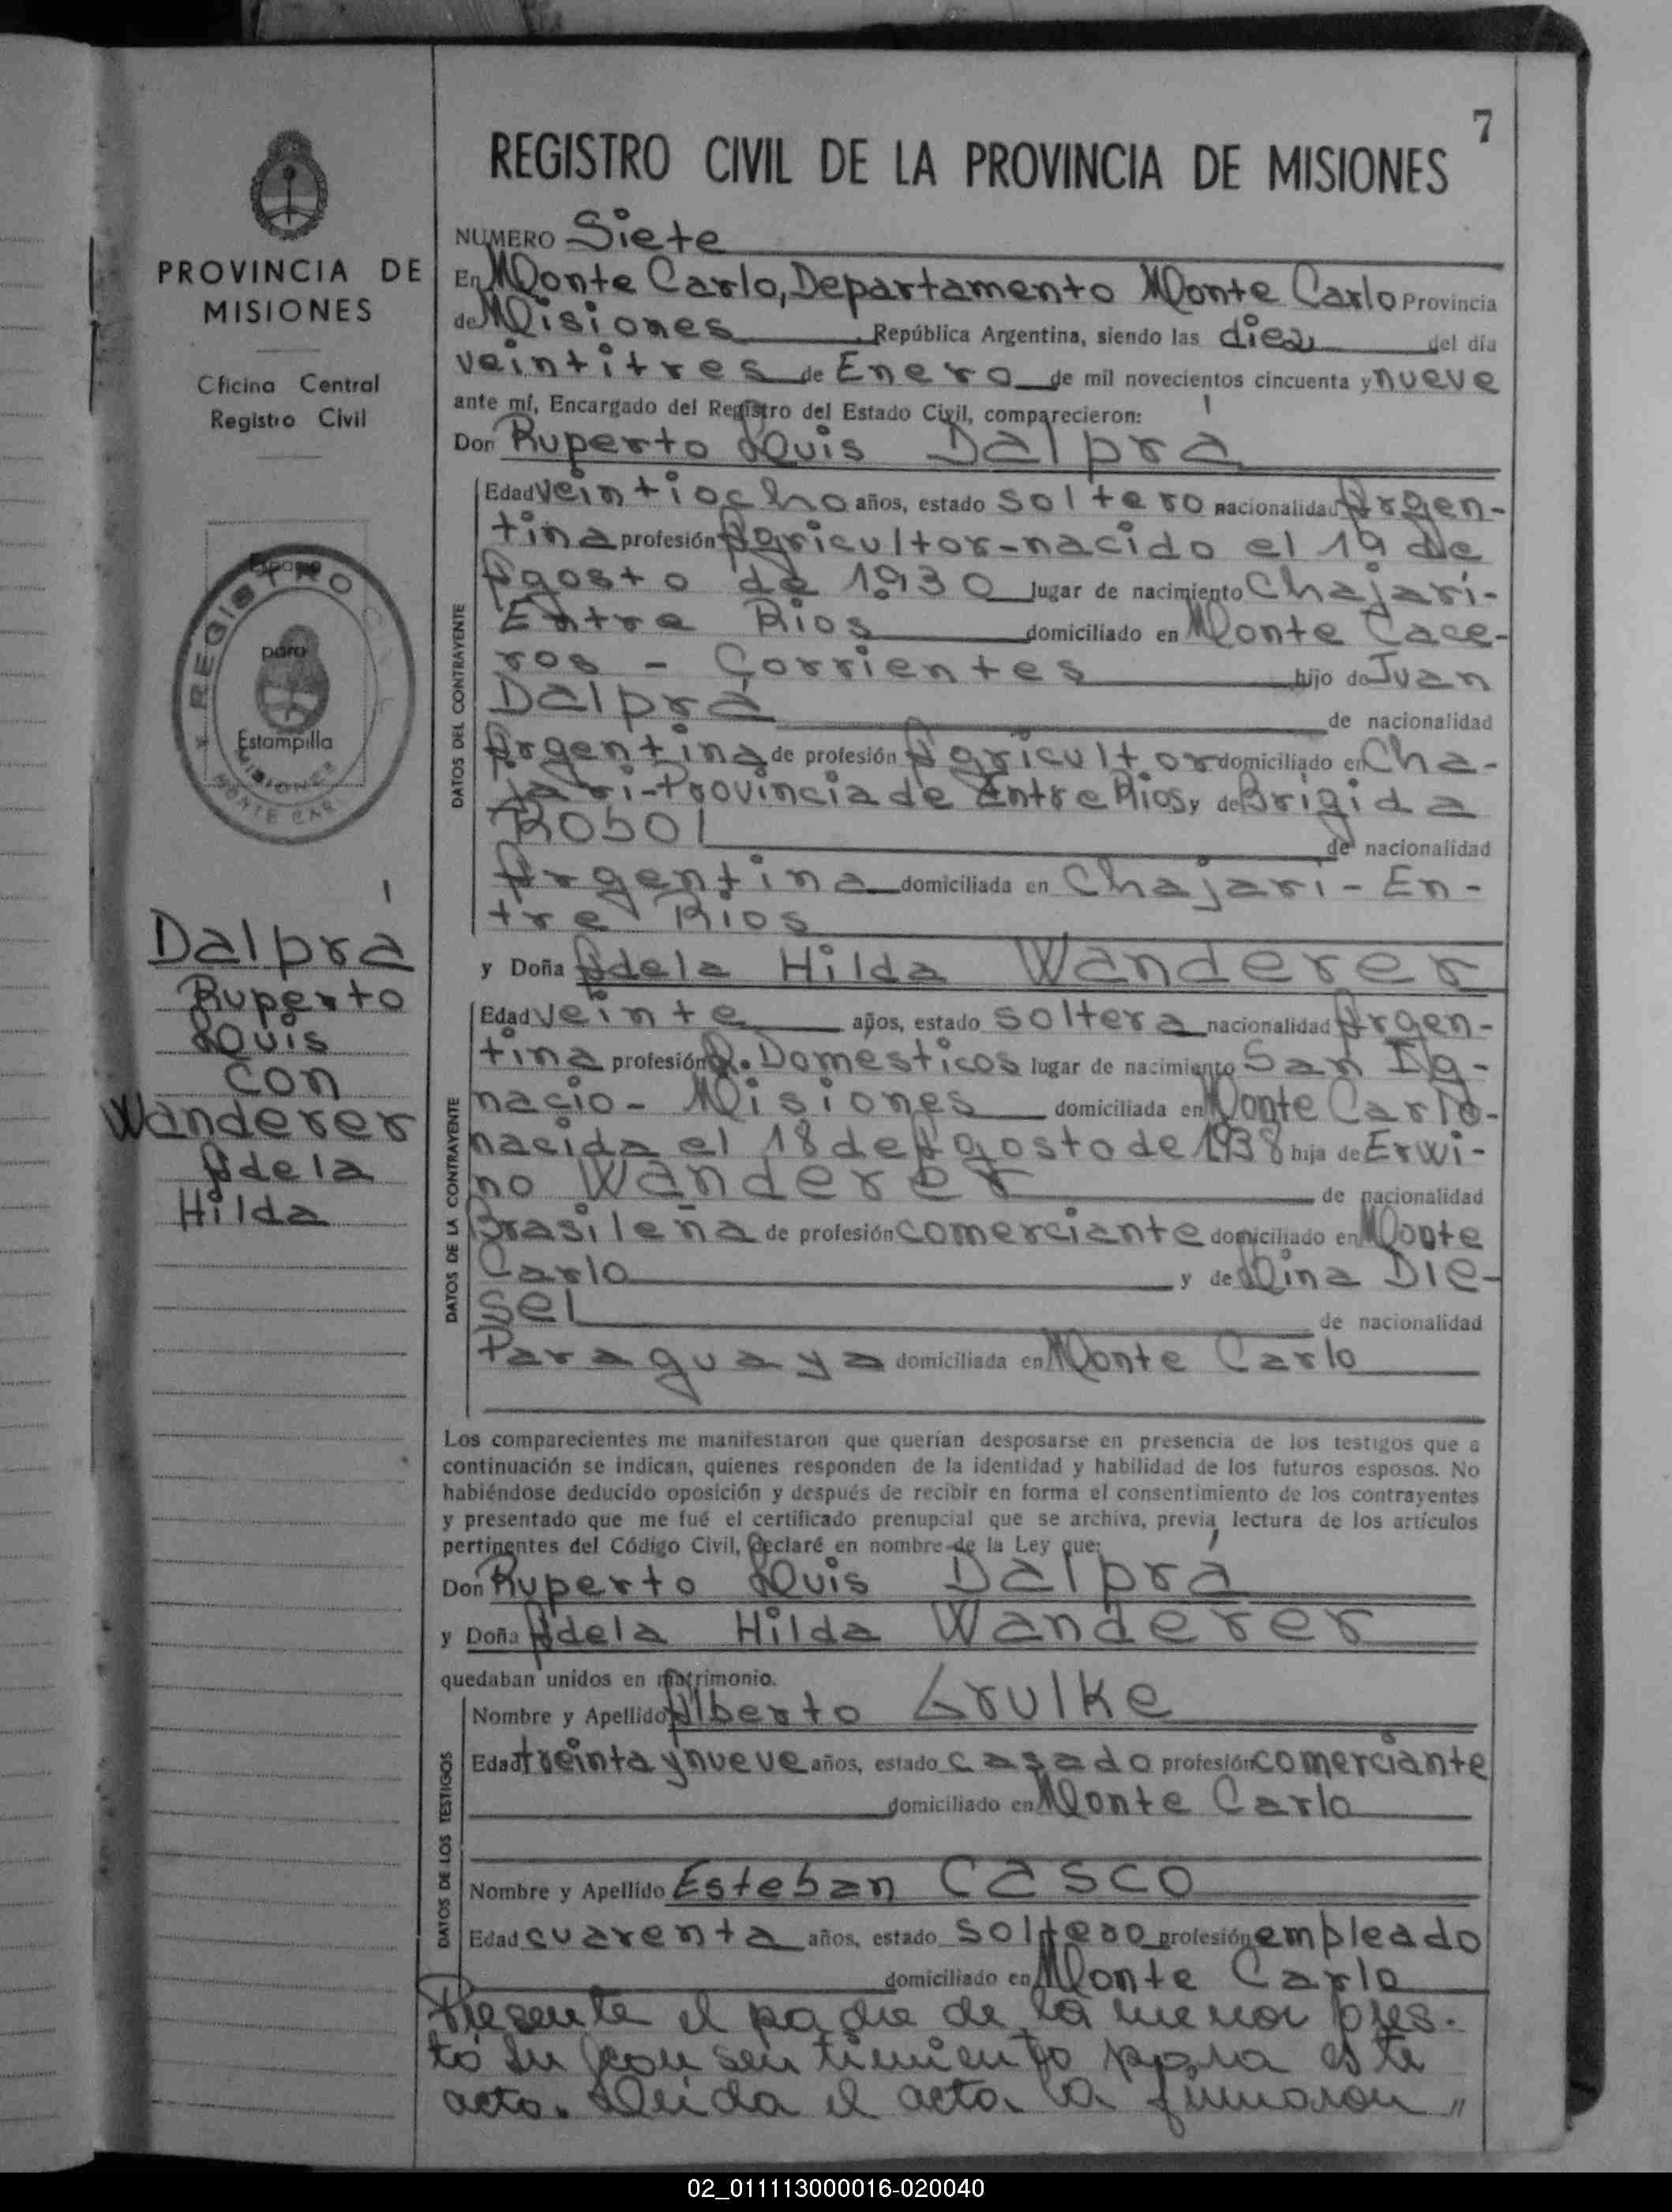 7
REGISTRO CIVIL DE LA PROVINCIA DE MISIONES
PROVINCIA DE
MISIONES
Oficina Central
Registro Civil
Espacio
para
Estampilla
REGISTRO CIVIL
MISIONES
MONTE CAR
Dalprá
Ruperto
Luis
con
Wanderer
Adela
Hilda
NUMERO Siete
En Monte Carlo, Departamento Monte Carlo Provincia
de Misiones, República Argentina, siendo las diez del día
veintitres de Enero de mil novecientos cincuenta y nueve
ante mí, Encargado del Registro del Estado Civil, comparecieron:
Don Ruperto Luis Dalprá
DATOS DEL CONTRAYENTE
Edad veintiocho años, estado soltero nacionalidad Argen-
tina profesión Agricultor-nacido el 19 de
Agosto de 1.930 lugar de nacimiento Chajari-
Entre Rios domiciliado en Monte Cace-
ros - Corrientes hijo de Juan
Dalprá de nacionalidad
Argentina de profesión Agricultor domiciliado en Cha-
jari-Provincia de Entre Rios y de Brigida
Robol de nacionalidad
Argentina domiciliada en Chajari - En-
tre Rios
y Doña Adela Hilda Wanderer
DATOS DE LA CONTRAYENTE
Edad veinte años, estado soltera nacionalidad Argen-
tina profesión Q. Domesticos lugar de nacimiento San Ig-
nacio - Misiones domiciliada en Monte Carlo-
nacida el 18 de Agosto de 1938 hija de Erwi-
no Wanderer de nacionalidad
Brasileña de profesión comerciante domiciliado en Monte
Carlo y de Lina Die-
sel de nacionalidad
Paraguaya domiciliada en Monte Carlo
Los comparecientes me manifestaron que querían desposarse en presencia de los testigos que a
continuación se indican, quienes responden de la identidad y habilidad de los futuros esposos. No
habiéndose deducido oposición y después de recibir en forma el consentimiento de los contrayentes
y presentado que me fué el certificado prenupcial que se archiva, previa lectura de los artículos
pertinentes del Código Civil, declaré en nombre de la Ley que:
Don Ruperto Luis Dalprá
y Doña Adela Hilda Wanderer
quedaban unidos en matrimonio.
DATOS DE LOS TESTIGOS
Nombre y Apellido Alberto Grulke
Edad treinta y nueve años, estado casado profesión comerciante
domiciliado en Monte Carlo
Nombre y Apellido Esteban Casco
Edad cuarenta años, estado soltero profesión empleado
domiciliado en Monte Carlo
Presente el padre de la menor pres-
tó su consentimiento para este
acto. Leida el acta la firmaron "
02_011113000016-020040